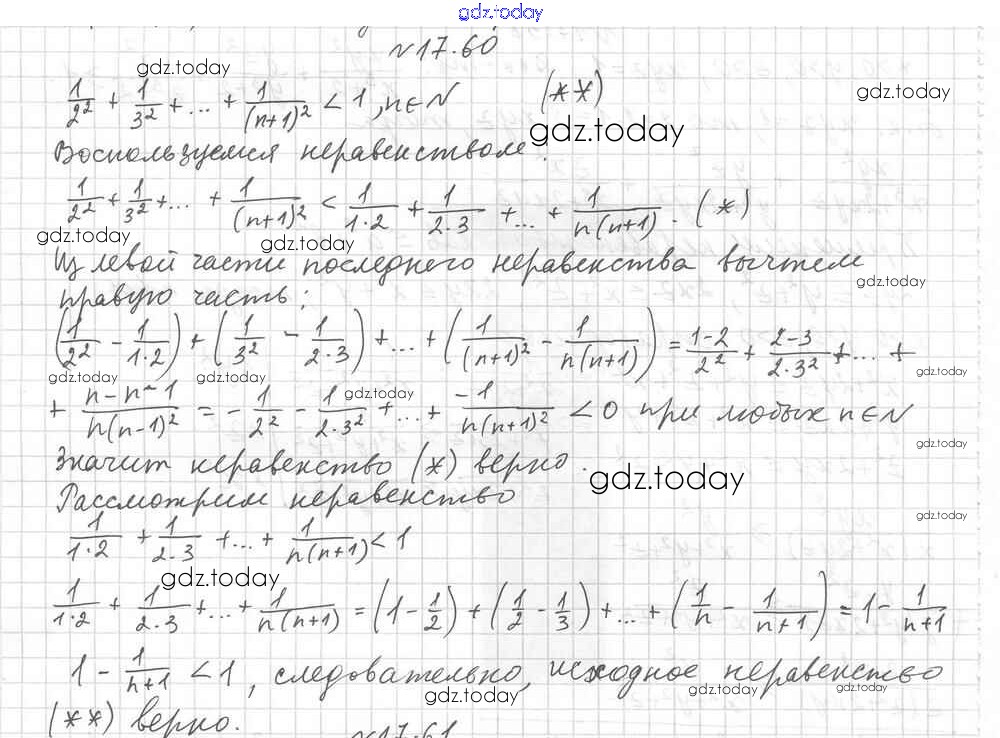 gdz.today
№17.60
gdz.today
1/2² + 1/3² + ... + 1/(n+1)² < 1, n∈N (**)
gdz.today
gdz.today
Воспользуемся неравенством
1/2² + 1/3² + ... + 1/(n+1)² < 1/1·2 + 1/2·3 + ... + 1/n(n+1). (*)
gdz.today
gdz.today
Из левой части последнего неравенства вычтем
gdz.today
правую часть:
(1/2² - 1/1·2) + (1/3² - 1/2·3) + ... + (1/(n+1)² - 1/n(n+1)) = 1-2/2² + 2-3/2·3² + ... +
gdz.today
gdz.today
gdz.today
gdz.today
+ n-n-1/n(n-1)² = - 1/2² - 1/2·3² + ... + -1/n(n+1)² < 0 при любых n∈N
gdz.today
Значит неравенство (*) верно.
gdz.today
Рассмотрим неравенство
gdz.today
1/1·2 + 1/2·3 + ... + 1/n(n+1) < 1
gdz.today
1/1·2 + 1/2·3 + ... + 1/n(n+1) = (1 - 1/2) + (1/2 - 1/3) + ... + (1/n - 1/n+1) = 1 - 1/n+1
1 - 1/n+1 < 1, следовательно, исходное неравенство
gdz.today
gdz.today
gdz.today
(**) верно.
№17.61